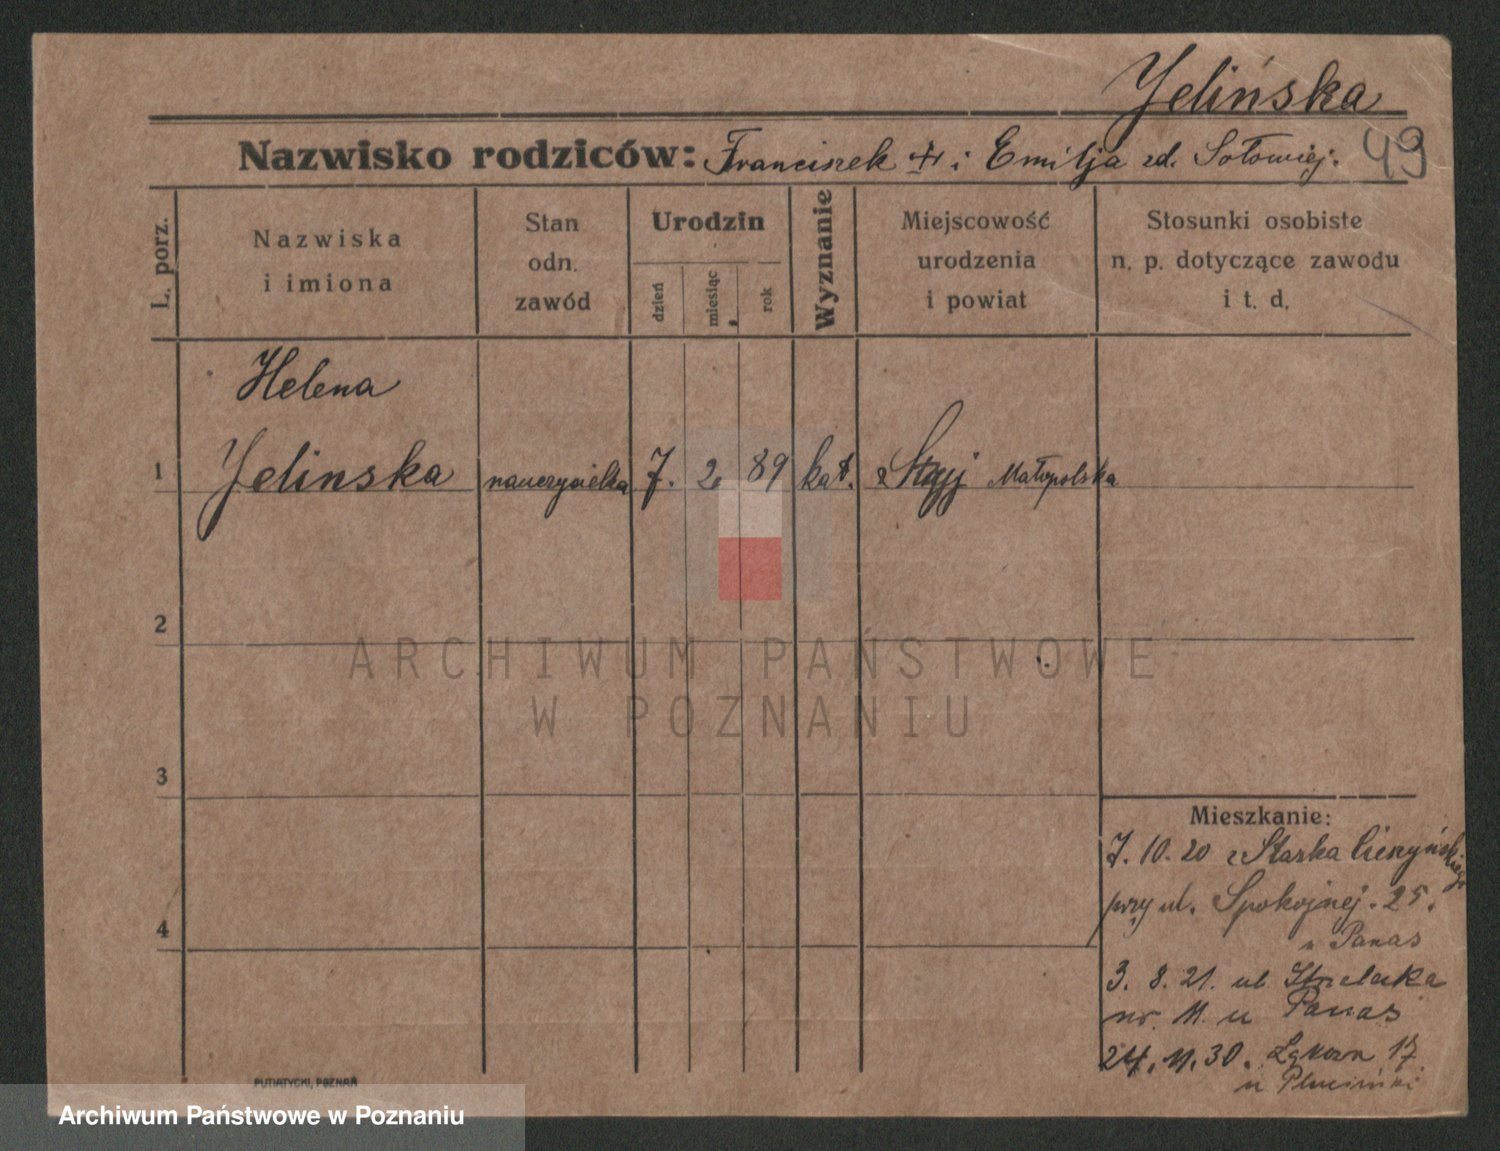 Jelińska
Nazwisko rodziców: Franciszek i Emilja zd. Sołowiej.
49
L. porz.
Nazwiska
i imiona
Stan
odn.
zawód
Urodzin
dzień
miesiąc
rok
Wyznanie
Miejscowość
urodzenia
i powiat
Stosunki osobiste
n. p. dotyczące zawodu
i t. d.
Helena
1 Jelinska nauczycielka 7. 2. 89 kat. z Stryj Małopolska
2
ARCHIWUM PAŃSTWOWE
W POZNANIU
3
Mieszkanie:
7. 10. 20 z Cieszyńskiego
przy ul. Spokojnej. 25.
u Panas
4
3. 8. 21. ul Strzelecka
nr. 11. u Panas
24. 11. 30. Łąkowa 17
u Plucinski
PUTIATYCKI, POZNAŃ
Archiwum Państwowe w Poznaniu